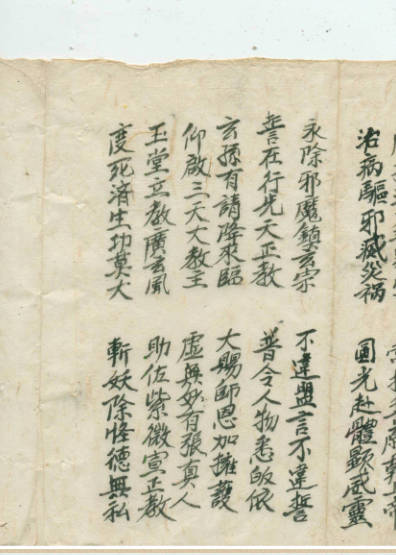 治病驅邪滅災祸 圓光赴體顯威靈
永除邪魔鎮玄宗 不違盟言不違誓
誓在行先天正教 普令人物悉皈依
玄孫有請降來臨 大賜師恩加擁護
仰啟三天大教主 虛無妙有張真人
玉堂立教廣玄風 助佐紫微宣正教
度死済生功莫大 斬妖除怪德無私